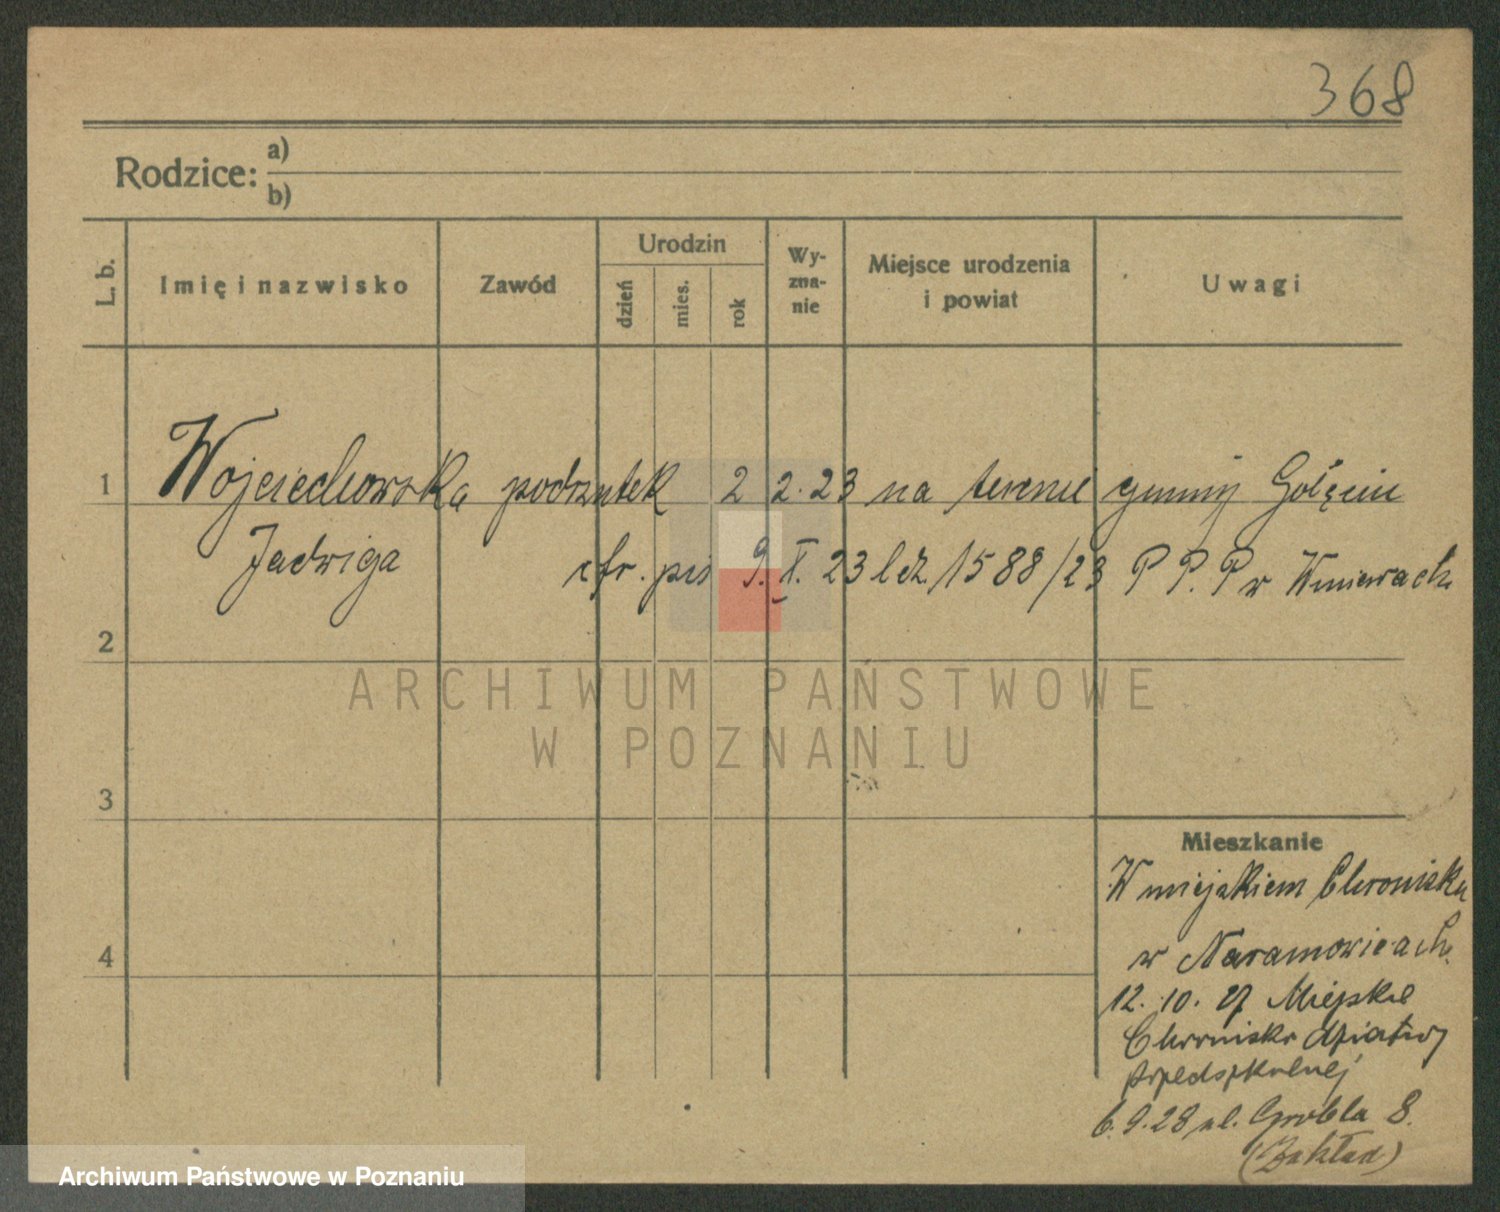 368
Rodzice: a)
b)
L. b.
Imię i nazwisko
Zawód
Urodzin
dzień
mies.
rok
Wy-
zna-
nie
Miejsce urodzenia
i powiat
Uwagi
1 Wojciechowska podrzutek 2 2. 23 na terenie gminy Golęcin
Jadwiga cfr. pis 9. X. 23 l dz. 1588/23 P. P. P w Winiarach
2
3
4
Mieszkanie
W miejskiem Chronisku
w Naramowicach.
12. 10. 27 Miejskie
Chronisko dziatwy
przedszkolnej
6. 9. 28 ul. Grobla 8.
(Zakład)
ARCHIWUM PAŃSTWOWE
W POZNANIU
Archiwum Państwowe w Poznaniu